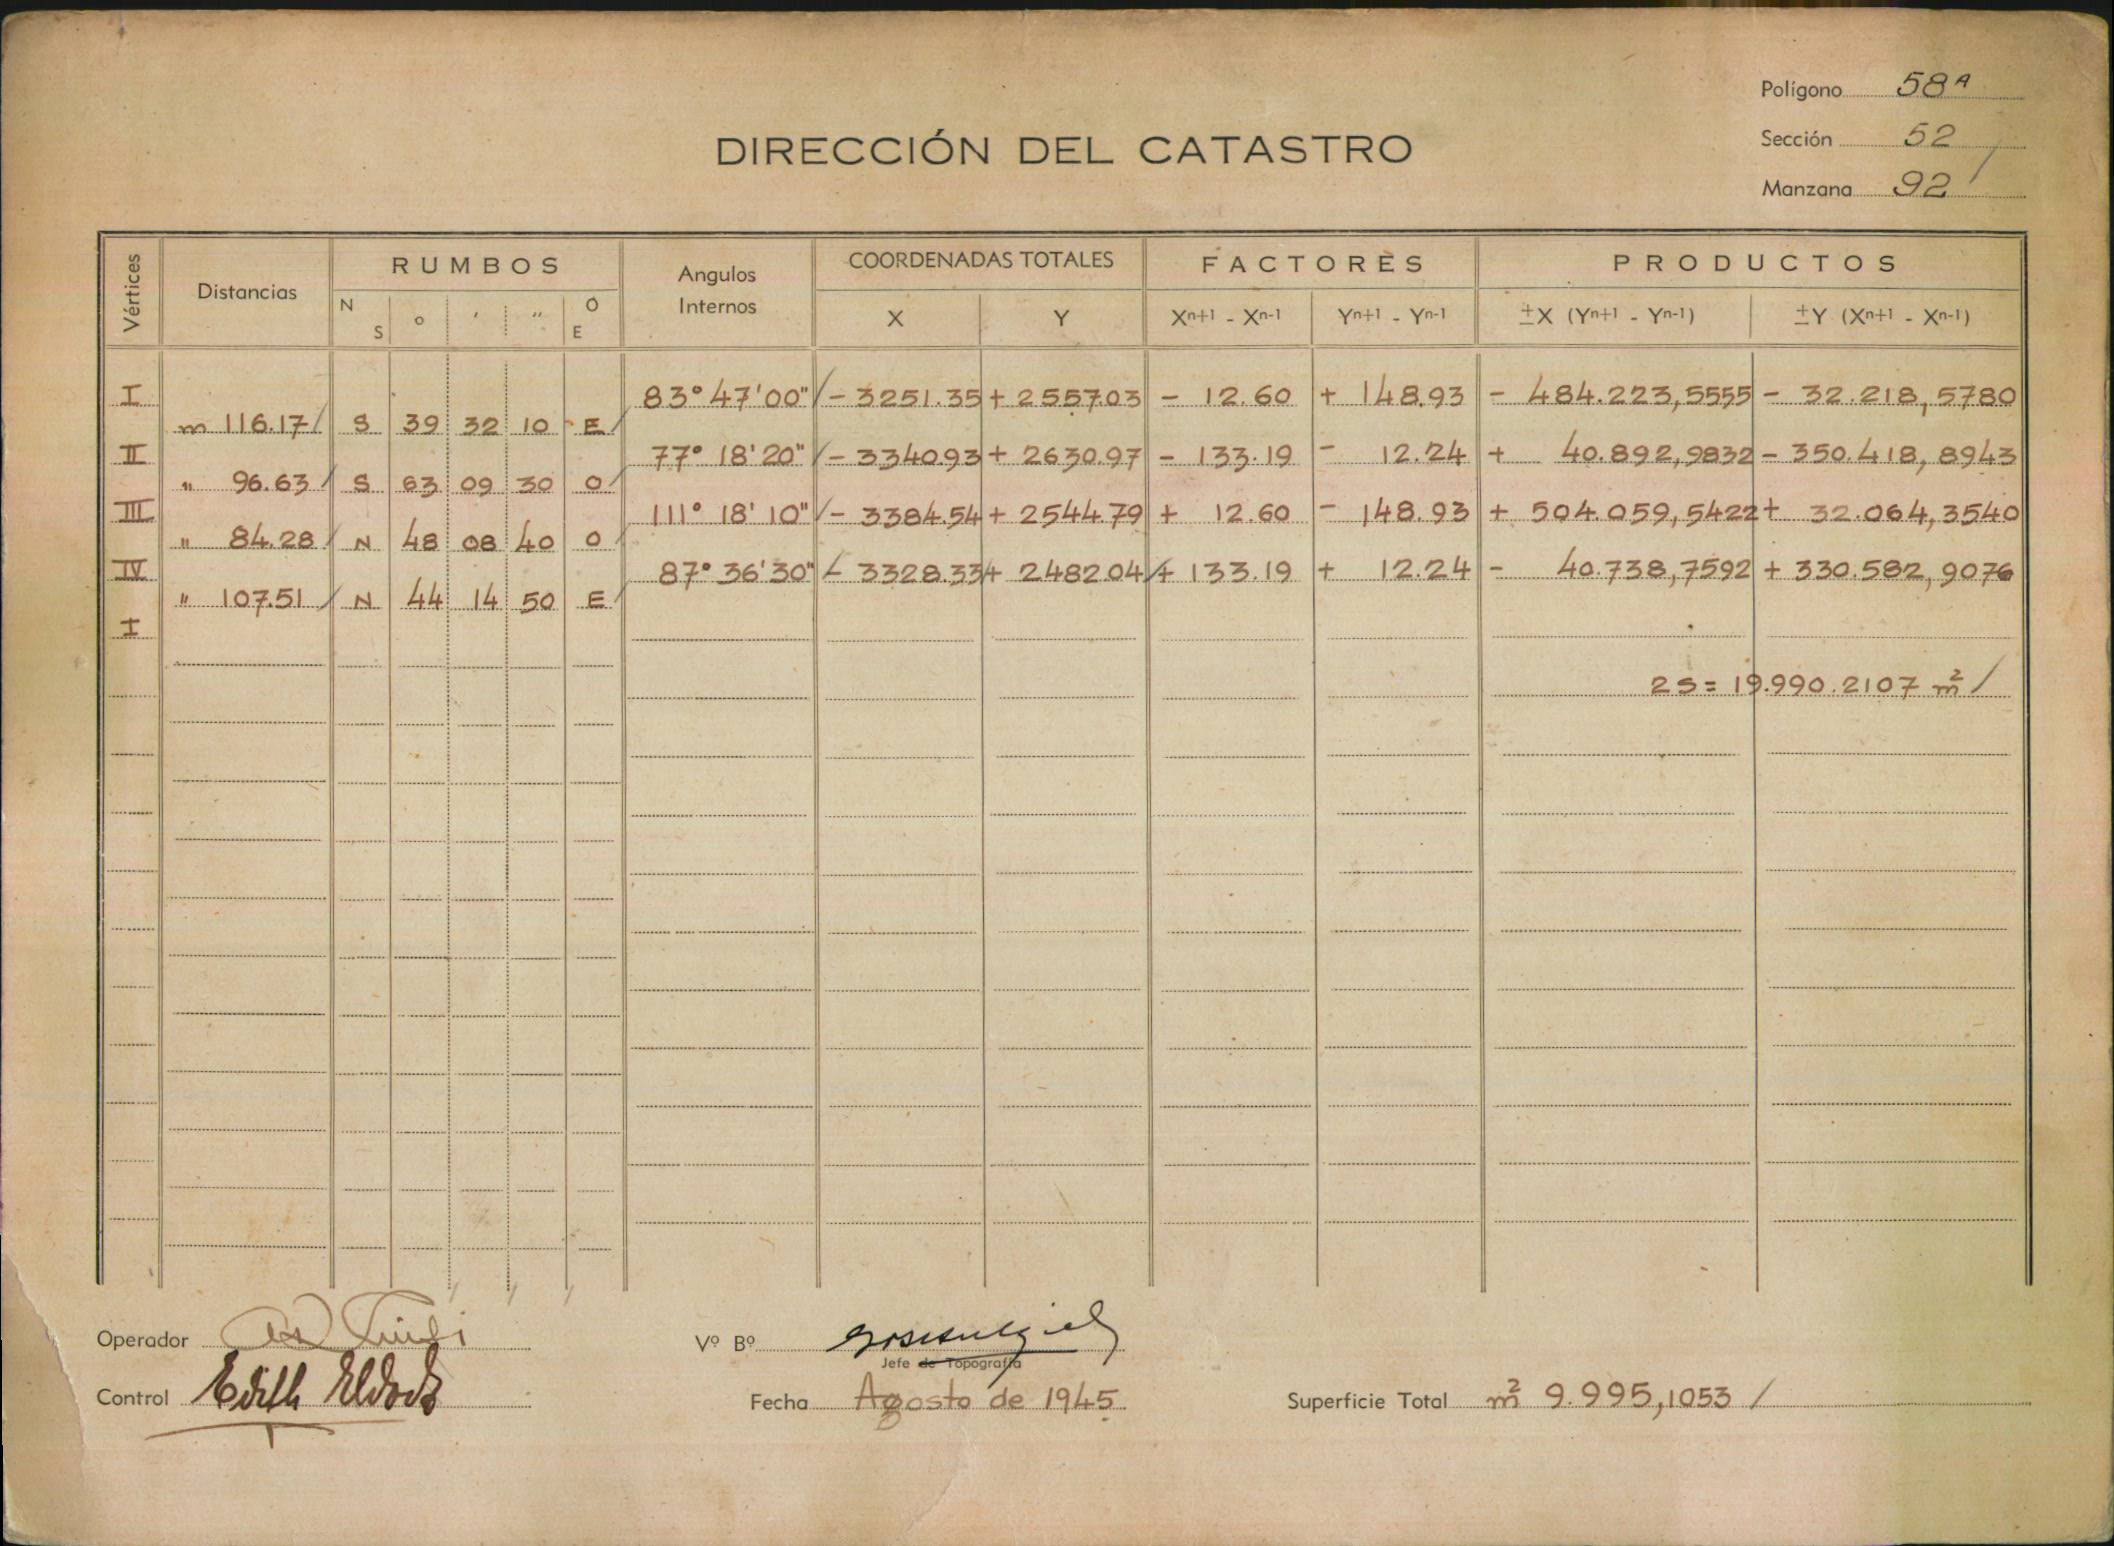 Polígono 58A
DIRECCIÓN DEL CATASTRO
Sección 52
Manzana 92
Vértices
Distancias
RUMBOS
N S ° ' " O E
Angulos Internos
COORDENADAS TOTALES
X Y
FACTORES
Xn+1 - Xn-1 Yn+1 - Yn-1
PRODUCTOS
±X (Yn+1 - Yn-1) ±Y (Xn+1 - Xn-1)
I 83° 47' 00" - 3251.35 + 2557.03 - 12.60 + 148.93 - 484.223,5555 - 32.218,5780
m 116.17 S 39 32 10 E
II 77° 18' 20" - 3340.93 + 2630.97 - 133.19 - 12.24 + 40.892,9832 - 350.418,8943
" 96.63 S 63 09 30 O
III 111° 18' 10" - 3384.54 + 2544.79 + 12.60 - 148.93 + 504.059,5422 + 32.064,3540
" 84.28 N 48 08 40 O
IV 87° 36' 30" - 3328.33 + 2482.04 + 133.19 + 12.24 - 40.738,7592 + 330.582,9076
" 107.51 N 44 14 50 E
I
2S = 19.990.2107 m²
Operador
Vº Bº
Jefe de Topografía
Control Edith
Fecha Agosto de 1945
Superficie Total m² 9.995,1053